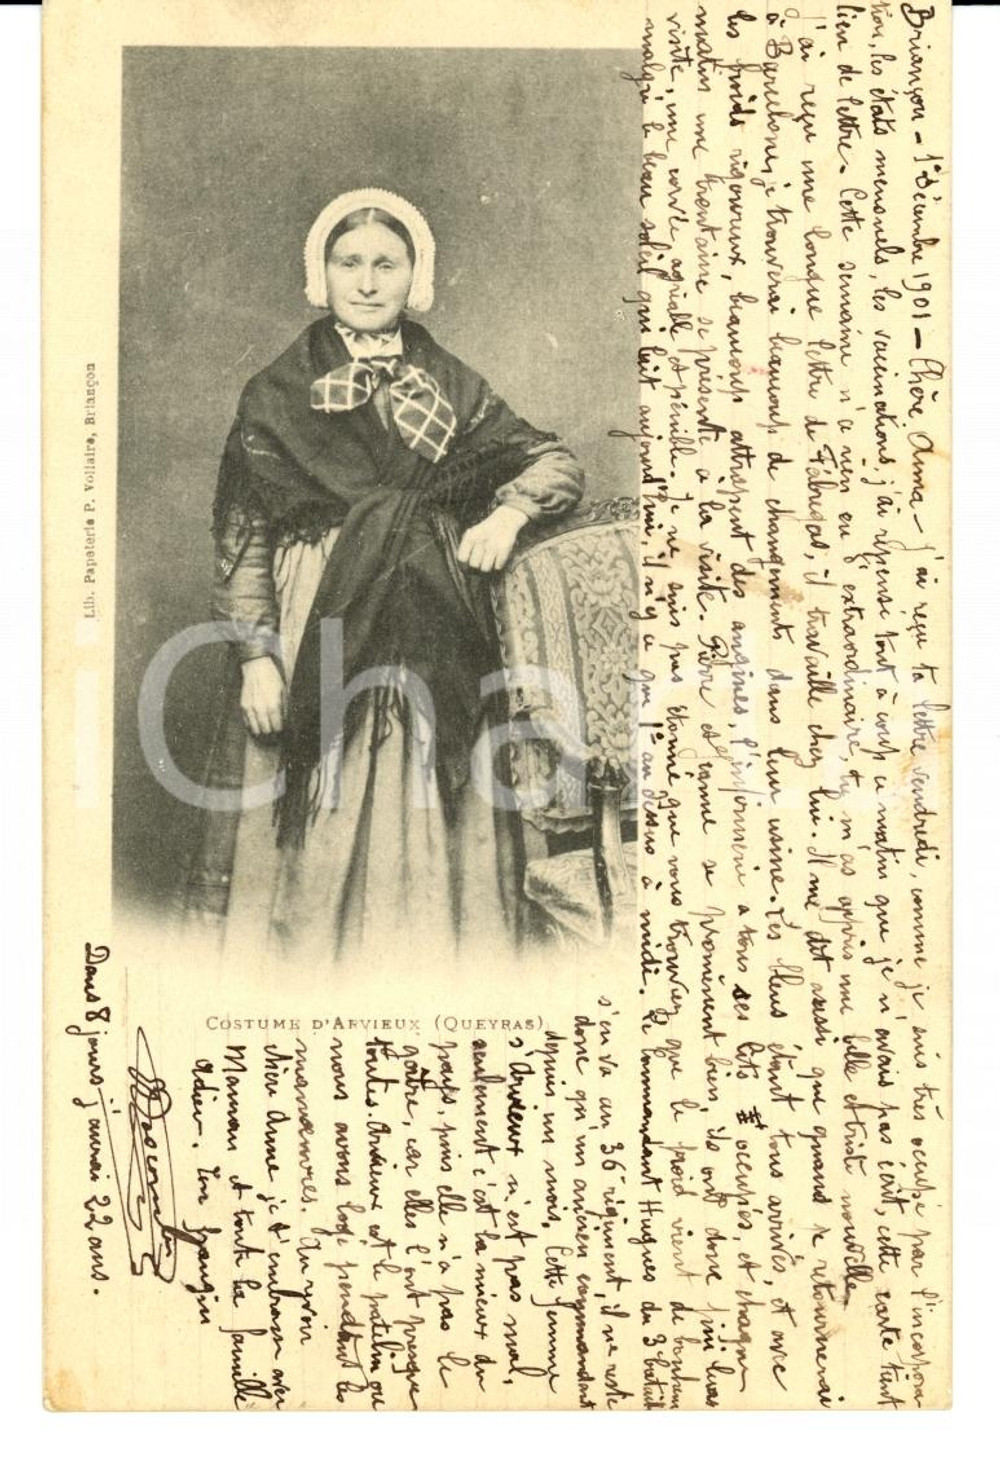 Briançon - 1er Décembre 1901 - Chère Anna - J'ai reçu ta lettre vendredi, comme je suis très occupé par l'incorpora-
tion, les états mensuels, les vaccinations, j'ai repensé tout à coup ce matin que je n'avais pas écrit, cette carte tient
lieu de lettre. Cette semaine n'a rien eu d'extraordinaire, tu m'as appris une belle et triste nouvelle.
J'ai reçu une longue lettre de Fabregas, il travaille chez lui. Il me dit aussi que quand je retournerai
à Barcelone, je trouverai beaucoup de changements dans leur usine. Les bleus étant tous arrivés, et avec
les froids rigoureux, beaucoup attrapent des angines, l'infirmerie a tous ses lits occupés, et chaque
matin une trentaine se présente à la visite. Pierre et Jeanne se promènent bien, ils ont donc fini leurs
visite, une corvée agréable et pénible. Je ne suis pas étonné que vous trouviez que le froid vient de bonheur
malgré le beau soleil qui luit aujourd'hui, il n'y a que 1° au dessus à midi. Le Commandant Hugues du 3e bataill
s'en va au 36 régiment, il ne reste
donc qu'un ancien commandant
depuis un mois. Cette femme
d'Arvieux n'est pas mal,
seulement c'est la mieux du
pays, puis elle n'a pas le
goître, car elles l'ont presque
toutes. Arvieux est le patelin où
nous avons logé pendant les
manoeuvres. Au revoir
chère Anna je t'embrasse avec
Maman et toute la famille
Adieu. Ton frangin
Dans 8 jours j'aurai 22 ans.
COSTUME D'ARVIEUX (QUEYRAS)
Lib. Papeterie P. Vollaire, Briançon
iChar